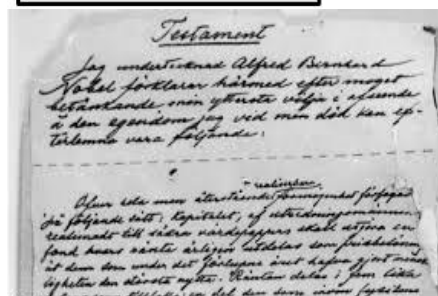 Testament
Jag undertecknad Alfred Bernhard
Nobel förklarar härmed efter moget
betänkande min yttersta vilja i afseende
å den egendom jag vid min död kan ef-
terlemna vara följande:
realiserbara
Öfver hela min återstående förmögenhet förfogas
på följande sätt: Kapitalet, af utredningsmännen
realiserade till säkra värdepapper, skall utgöra en
fond hvars ränta årligen utdelas som prisbelöning
åt dem som under det förlupne året hafva gjort mensk-
ligheten den största nytta. Räntan delas i fem lika
del den som inom fysikens